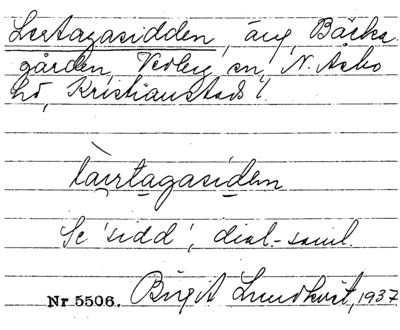 Lertagasidden, äng, Bäcks-
gården, Vedby sn, N. Åsbo
hd, Kristianstads l.
lärtagasidem
Se 'sidd', dial.-saml.
Nr. 5506. Birgit Lundkvist, 1937